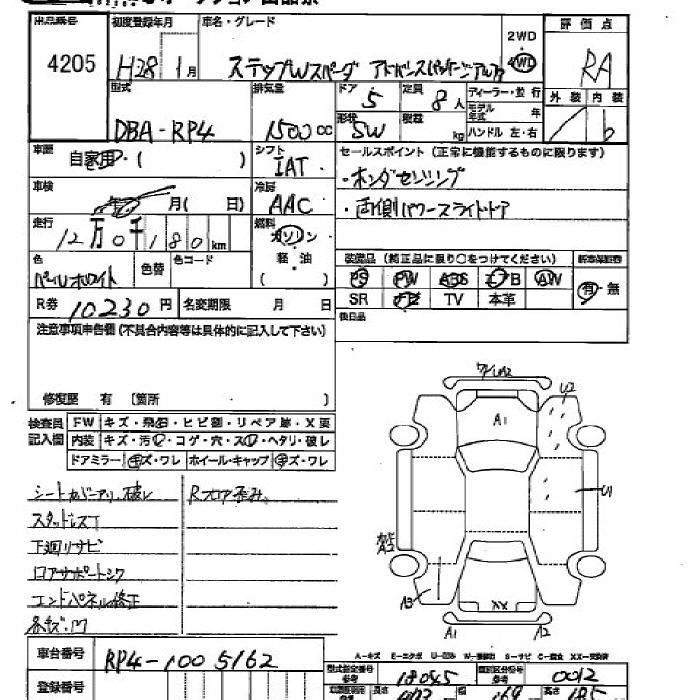 出品番号 初度登録年月 車名・グレード 評価点
4205 H28 1月 ステップWスパーダ 2WD 4WD RA
型式 排気量 ドア 5 定員 8人 ディーラー・並行 外装 内装
DBA-RP4 1500cc 形状 5W 積載 kg モデル年式 年 ハンドル 左・右 b
車歴 自家用・( ) シフト IAT セールスポイント(正常に機能するものに限ります)
車検 月( 日) 冷房 AAC ・ホンダセンシング
走行 12万0千180km 燃料 ガソリン ・両側パワースライドドア
色 パールホワイト 色替 色コード 軽・油 ( )
装備品(純正品に限り○をつけてください) 新車保証書
PS PW ABS エアB AW 有・無
SR ナビ TV 本革
R券 10230円 名変期限 月 日 後日品
注意事項申告欄(不具合内容等は具体的に記入して下さい)
修復歴 有 〔箇所 〕
検査員記入欄 FW キズ・飛石・ヒビ割・リペア跡・X要
内装 キズ・汚○・コゲ・穴・ス○・ヘタリ・破レ
ドアミラー キズ・ワレ ホイール・キャップ キズ・ワレ
シートカバーアリ、破レ Rフロア歪み
スタッドレスT
下廻りサビ
コアサポートシワ
エンドパネル修正
A1
U2
U1
A3
XX
A1 A2
A-キズ E-エクボ U-凹み W-補修跡 S-サビ C-腐食 XX-交換済
車台番号 RP4-1005162
型式指定番号 18045 類別区分番号 0012
登録番号 長さ 幅 169 高さ 185